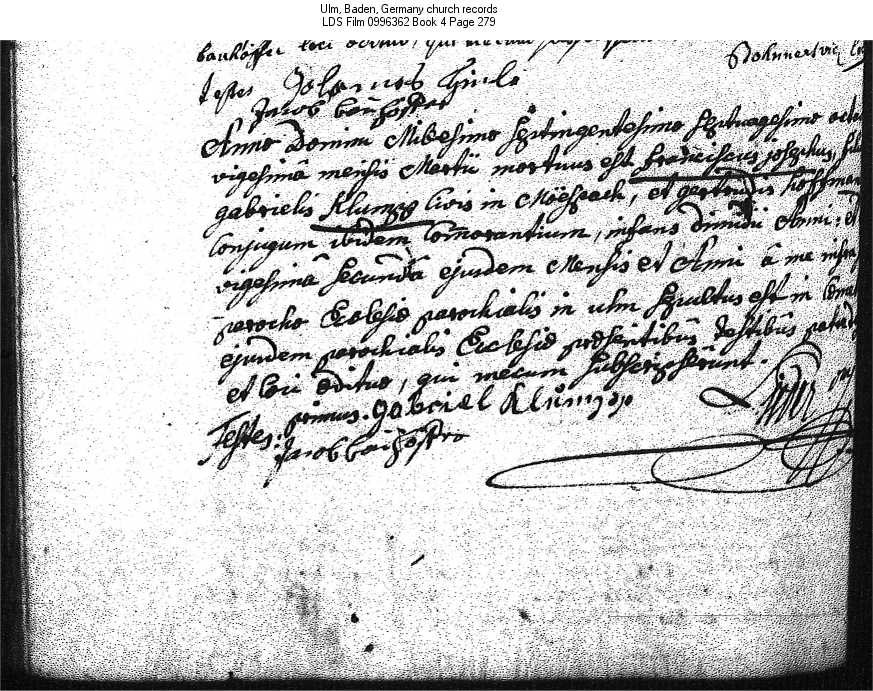 Ulm, Baden, Germany church records
LDS Film 0996362 Book 4 Page 279
testes Johannes
Jacob bauhoffer
Anno Domini Millesimo Septingentesimo Septuagesimo octa
vigesimâ mensis Martii mortuus est Franciscus josephus, fil
gabrielis Klumpp Civis in Mösbach, et gertrudis hoffman
Conjugum ibidem Commorantium, infans dimidii Anni; et
vigesimâ secundâ ejusdem Mensis et Anni â me infra
parocho Ecclesiæ parochialis in ulm sepultus est in Cœme
ejusdem parochialis Ecclesiæ præsentibus testibus patre
et loci ædituo, qui mecum subscripserunt.
Testes: primus. gabriel Klumpp
Jacob bauhoffer